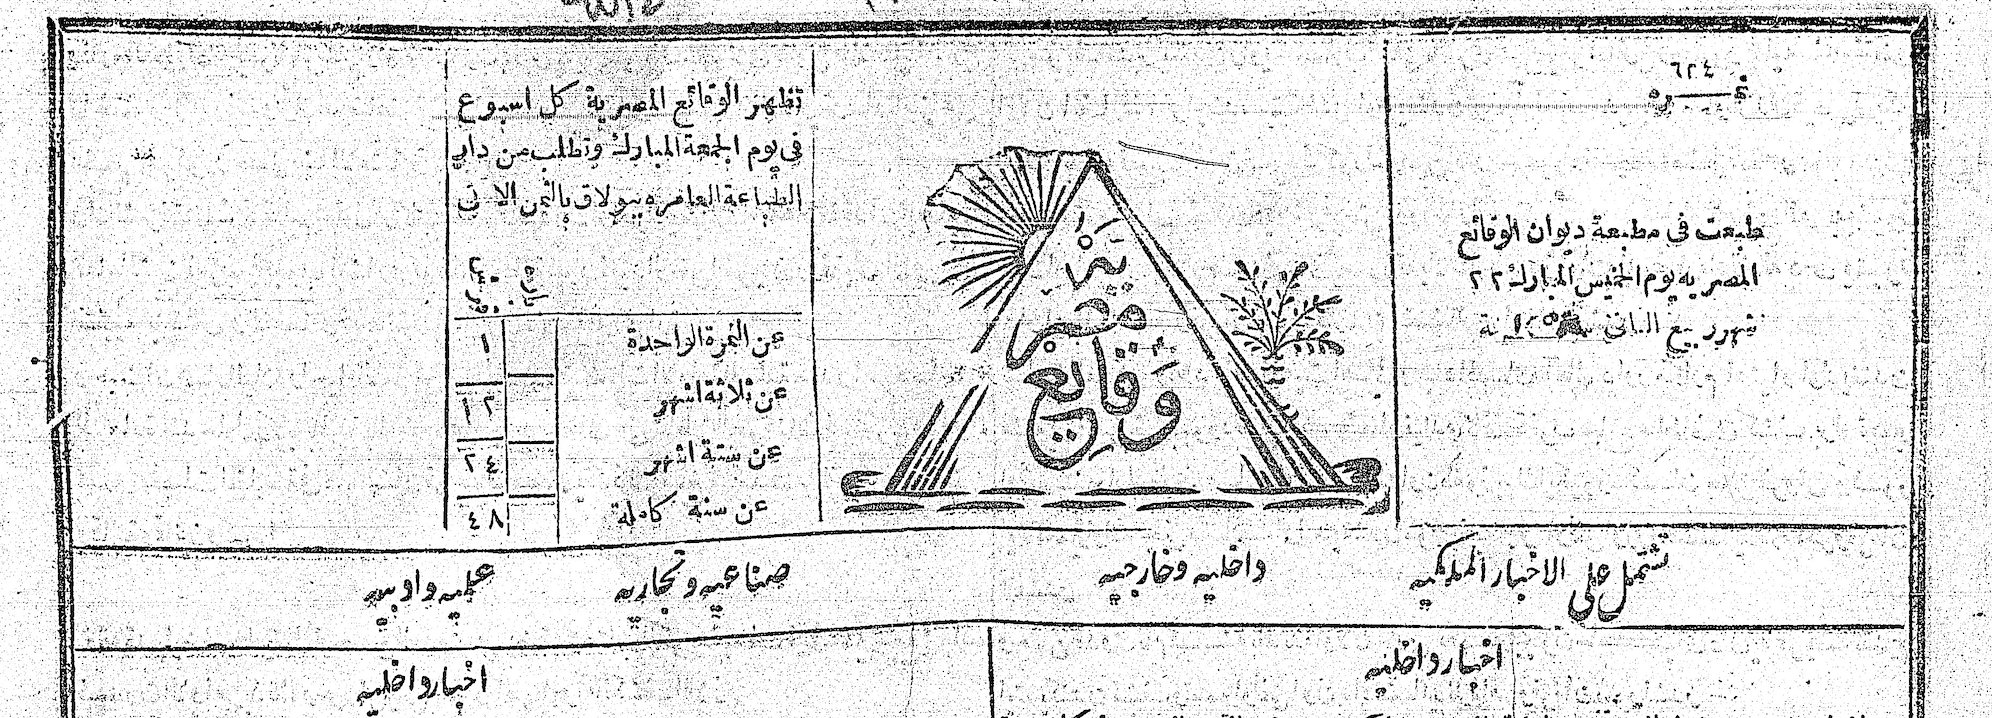 ٦٢٤
نمره
طبعت في مطبعة ديوان الوقائع
المصريه يوم الخميس المبارك ٢٢
شهر ربيع الثاني سنة
وقايع
مصرية
تظهر الوقائع المصرية كل اسبوع
في يوم الجمعة المبارك وتطلب من دار
الطباعة العامره ببولاق بالثمن الاتي
باره قرش
عن النمرة الواحدة ١
عن ثلاثة اشهر ١٢
عن ستة اشهر ٢٤
عن سنة كاملة ٤٨
تشتمل على الاخبار الملكيه داخليه وخارجيه صناعيه وتجاريه علميه وادبيه
اخبار داخليه
اخبار داخليه